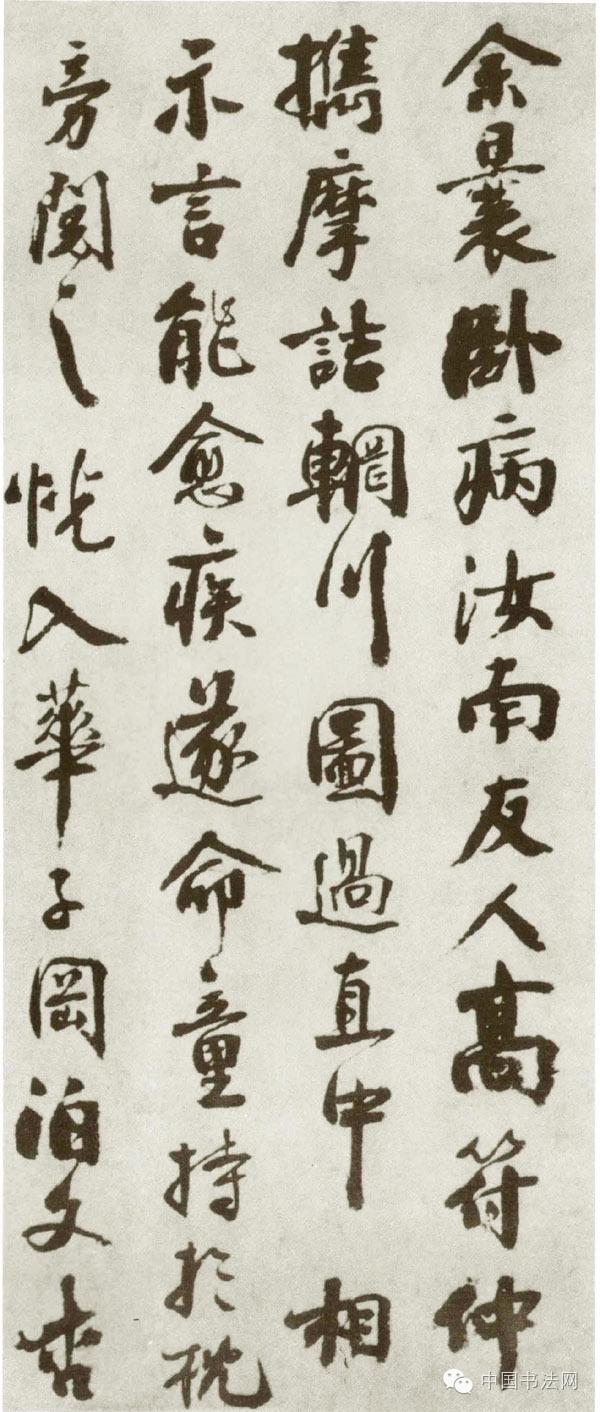 余曩卧病汝南友人高符仲
攜摩詰輞川圖過直中相
示言能愈疾遂命童持於枕
旁閱之恍入華子岡泊文杏
中国书法网